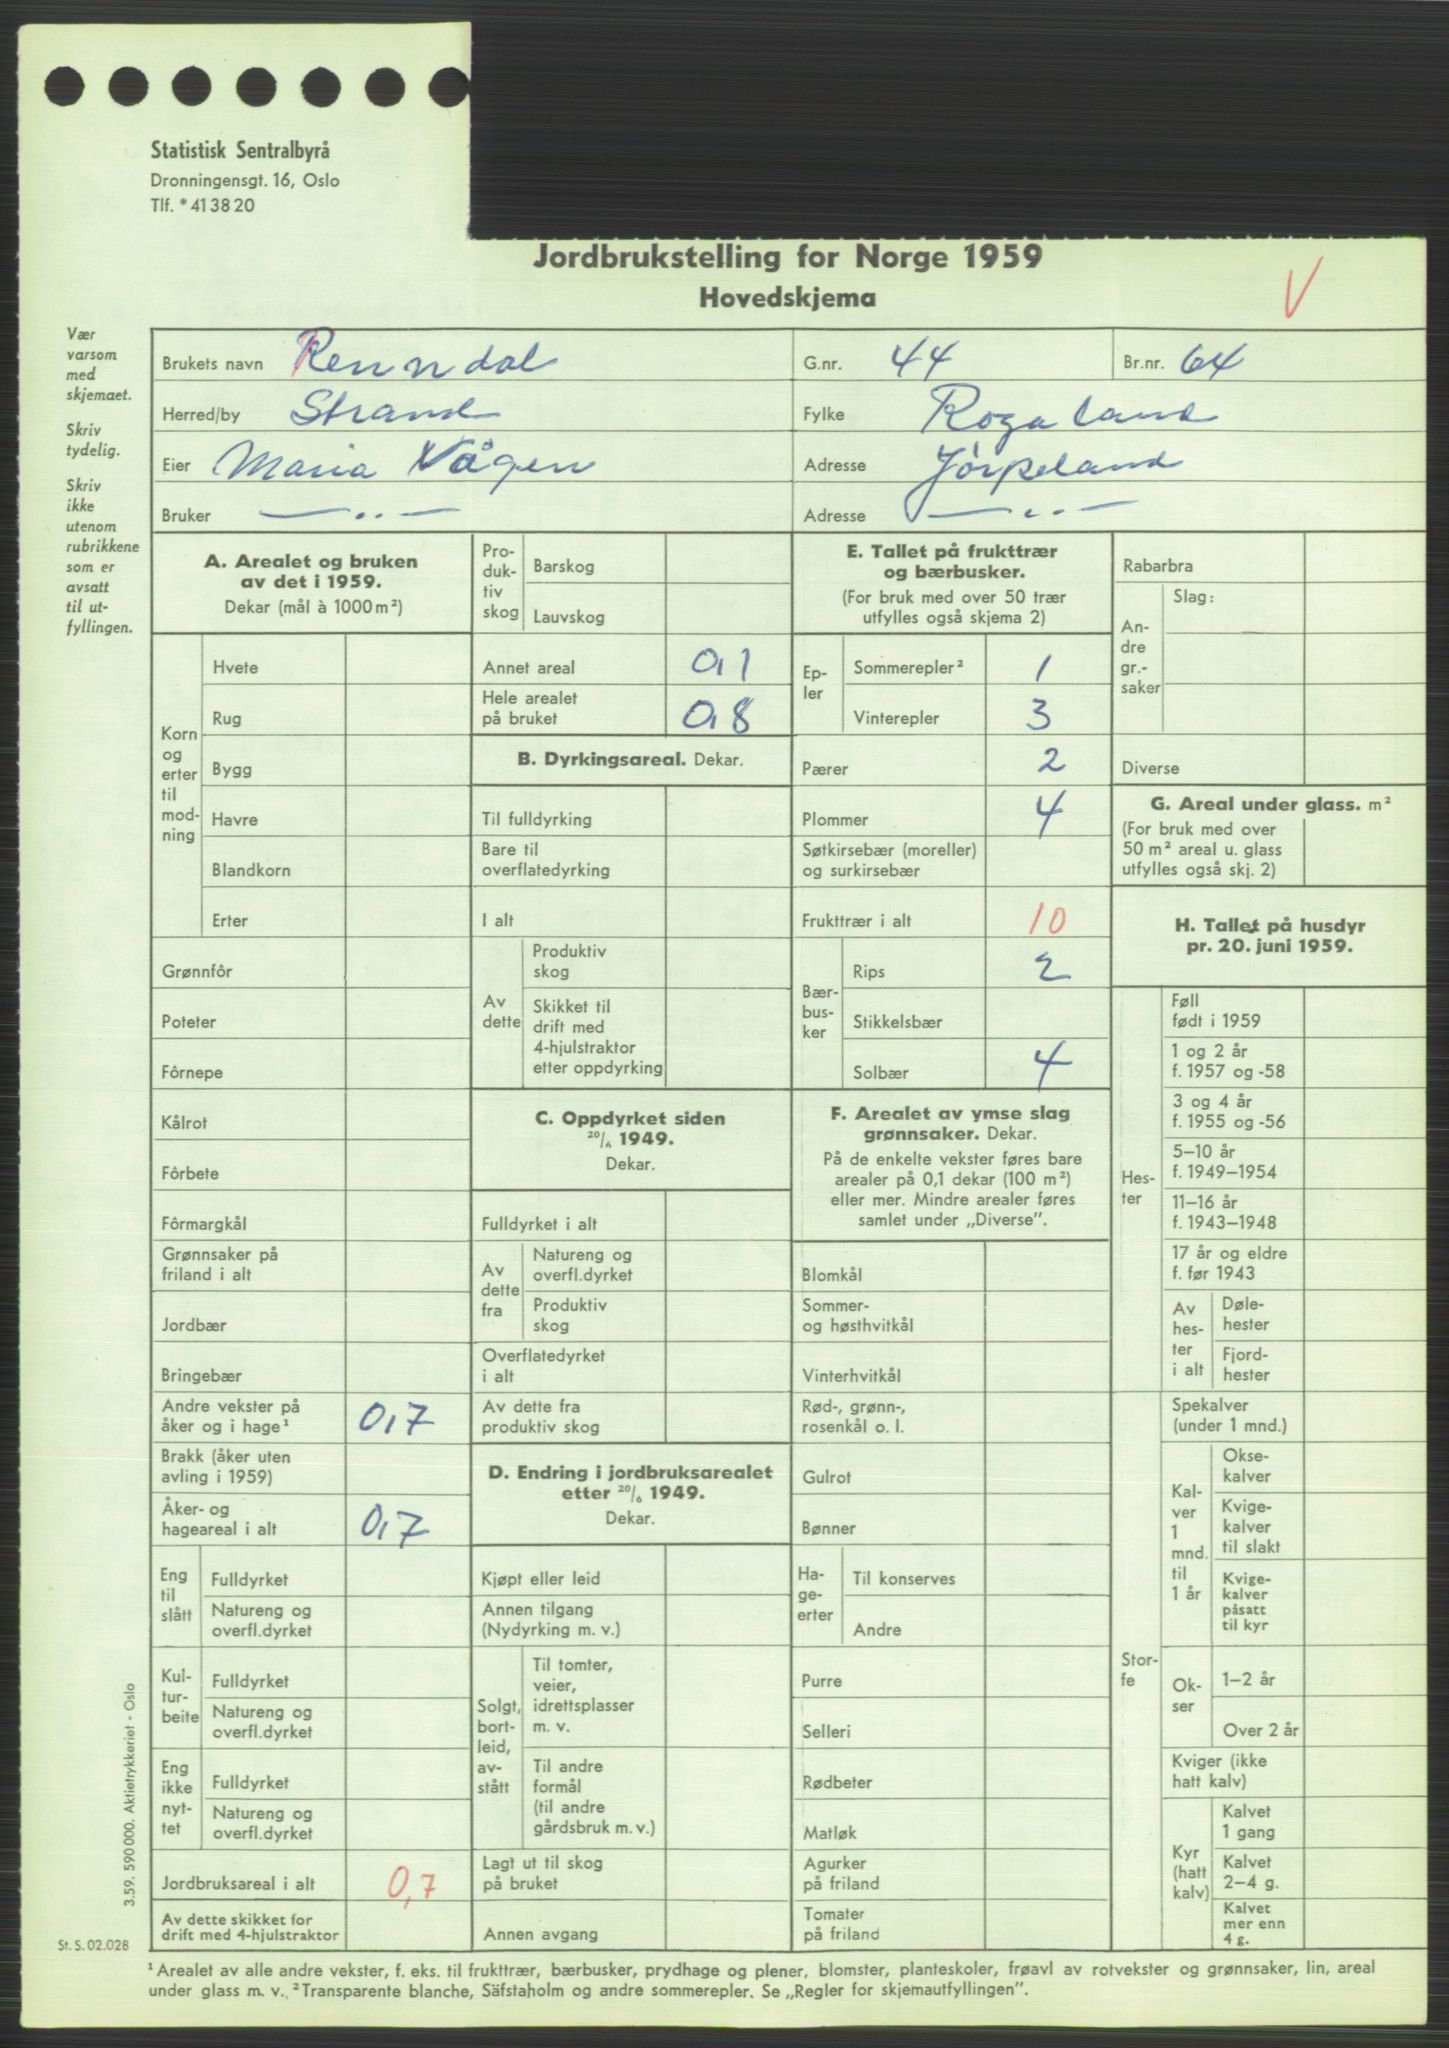 Statistisk Sentralbyrå
Dronningensgt. 16, Oslo
Tlf. * 41 38 20
Jordbrukstelling for Norge 1959
Hovedskjema
V
Vær
varsom
med
skjemaet.
Skriv
tydelig.
Skriv
ikke
utenom
rubrikkene
som er
avsatt
til ut-
fyllingen.
Brukets navn Renndal G.nr. 44 Br.nr. 64
Herred/by Strand Fylke Rogaland
Eier Maria Vågen Adresse Jørpeland
Bruker — „ — Adresse — „ —
A. Arealet og bruken
av det i 1959.
Dekar (mål à 1000 m²)
Korn
og
erter
til
mod-
ning
Hvete
Rug
Bygg
Havre
Blandkorn
Erter
Grønnfôr
Poteter
Fôrnepe
Kålrot
Fôrbete
Fôrmargkål
Grønnsaker på
friland i alt
Jordbær
Bringebær
Andre vekster på
åker og i hage¹ 0,7
Brakk (åker uten
avling i 1959)
Åker- og
hageareal i alt 0,7
Eng
til
slått
Fulldyrket
Natureng og
overfl.dyrket
Kul-
tur-
beite
Fulldyrket
Natureng og
overfl.dyrket
Eng
ikke
nyt-
tet
Fulldyrket
Natureng og
overfl.dyrket
Jordbruksareal i alt 0,7
Av dette skikket for
drift med 4-hjulstraktor
Pro-
duk-
tiv
skog
Barskog
Lauvskog
Annet areal 0,1
Hele arealet
på bruket 0,8
B. Dyrkingsareal. Dekar.
Til fulldyrking
Bare til
overflatedyrking
I alt
Av
dette
Produktiv
skog
Skikket til
drift med
4-hjulstraktor
etter oppdyrking
C. Oppdyrket siden
20/6 1949.
Dekar.
Fulldyrket i alt
Av
dette
fra
Natureng og
overfl.dyrket
Produktiv
skog
Overflatedyrket
i alt
Av dette fra
produktiv skog
D. Endring i jordbruksarealet
etter 20/6 1949.
Dekar.
Kjøpt eller leid
Annen tilgang
(Nydyrking m. v.)
Solgt,
bort-
leid,
av-
stått
Til tomter,
veier,
idrettsplasser
m. v.
Til andre
formål
(til andre
gårdsbruk m. v.)
Lagt ut til skog
på bruket
Annen avgang
E. Tallet på frukttrær
og bærbusker.
(For bruk med over 50 trær
utfylles også skjema 2)
Ep-
ler
Sommerepler² 1
Vinterepler 3
Pærer 2
Plommer 4
Søtkirsebær (moreller)
og surkirsebær
Frukttrær i alt 10
Bær-
bus-
ker
Rips 2
Stikkelsbær
Solbær 4
F. Arealet av ymse slag
grønnsaker. Dekar.
På de enkelte vekster føres bare
arealer på 0,1 dekar (100 m²)
eller mer. Mindre arealer føres
samlet under „Diverse”.
Blomkål
Sommer-
og høsthvitkål
Vinterhvitkål
Rød-, grønn-,
rosenkål o. l.
Gulrot
Bønner
Ha-
ge-
erter
Til konserves
Andre
Purre
Selleri
Rødbeter
Matløk
Agurker
på friland
Tomater
på friland
Rabarbra
An-
dre
gr.-
saker
Slag:
Diverse
G. Areal under glass. m²
(For bruk med over
50 m² areal u. glass
utfylles også skj. 2)
H. Tallet på husdyr
pr. 20. juni 1959.
Hes-
ter
Føll
født i 1959
1 og 2 år
f. 1957 og -58
3 og 4 år
f. 1955 og -56
5–10 år
f. 1949–1954
11–16 år
f. 1943–1948
17 år og eldre
f. før 1943
Av
hes-
ter
i alt
Døle-
hester
Fjord-
hester
Stor-
fe
Spekalver
(under 1 mnd.)
Kal-
ver
1
mnd.
til
1 år
Okse-
kalver
Kvige-
kalver
til slakt
Kvige-
kalver
påsatt
til kyr
Ok-
ser
1–2 år
Over 2 år
Kviger (ikke
hatt kalv)
Kyr
(hatt
kalv)
Kalvet
1 gang
Kalvet
2–4 g.
Kalvet
mer enn
4 g.
3.59. 590 000. Aktietrykkeriet - Oslo
St. S. 02.028
¹ Arealet av alle andre vekster, f. eks. til frukttrær, bærbusker, prydhage og plener, blomster, planteskoler, frøavl av rotvekster og grønnsaker, lin, areal
under glass m. v. ² Transparente blanche, Säfstaholm og andre sommerepler. Se „Regler for skjemautfyllingen”.